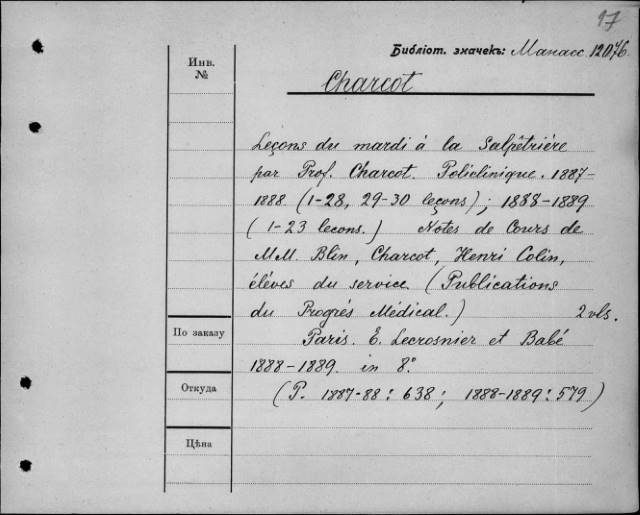 17
Библіот. значекъ: Манасс. 12076.
Инв.
№
Charcot
Leçons du mardi à la Salpêtrière
par Prof. Charcot. Policlinique. 1887-
1888. (1-28, 29-30 leçons); 1888-1889
(1-23 lecons.) Notes de Cours de
MM. Blin, Charcot, Henri Colin,
élèves du service. (Publications
du Progrés Médical.) 2 vls.
Paris. E. Lecrosnier et Babé
1888-1889. in 8°.
(P. 1887-88: 638; 1888-1889: 579)
По заказу
Откуда
Цѣна